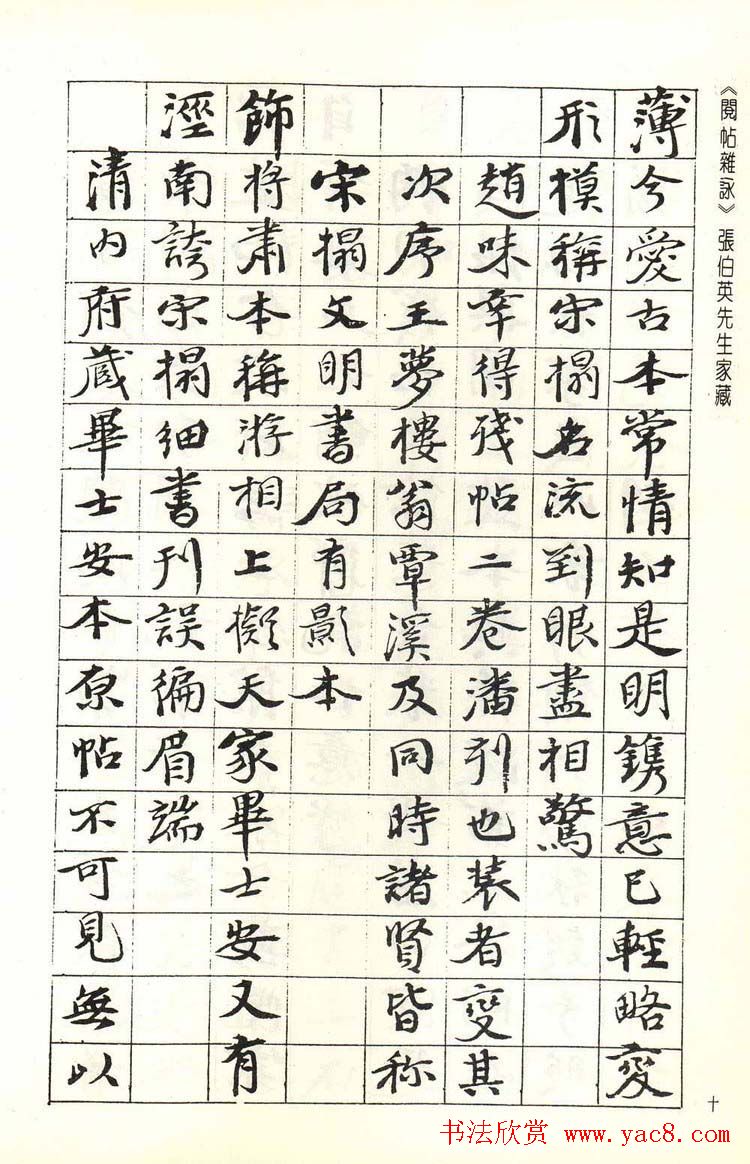 《閱帖雜詠》 張伯英先生家藏
薄今愛古本常情知是明鐫意已輕略變
形模稱宋搨名流到眼盡相驚
趙味幸得殘帖二卷潘刊也裝者變其
次序王夢樓翁覃溪及同時諸賢皆称
宋搨文明書局有影本
飾將肅本稱游相上擬天家畢士安又有
涇南誇宋搨細書刊誤徧眉端
清內府蔵畢士安本原帖不可見無以
十
书法欣赏 www.yac8.com